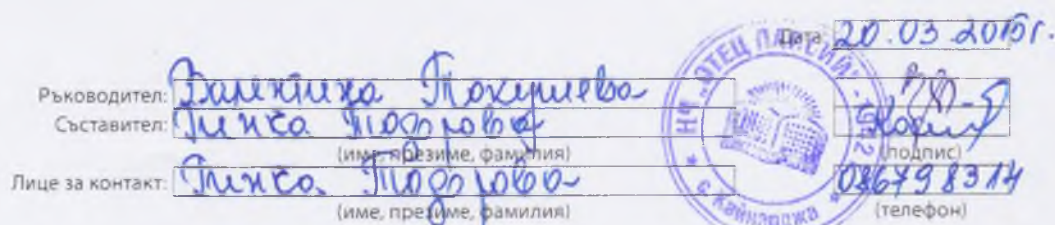 Дата: 20.03.2015г.
Ръководител: Валентина Токушева
Съставител: Гинка Тодорова
(име, презиме, фамилия) (подпис)
Лице за контакт: Гинка Тодорова 086798314
(име, презиме, фамилия) (телефон)
НЧ „ОТЕЦ ПАИСИЙ"
с. Кайнарджа